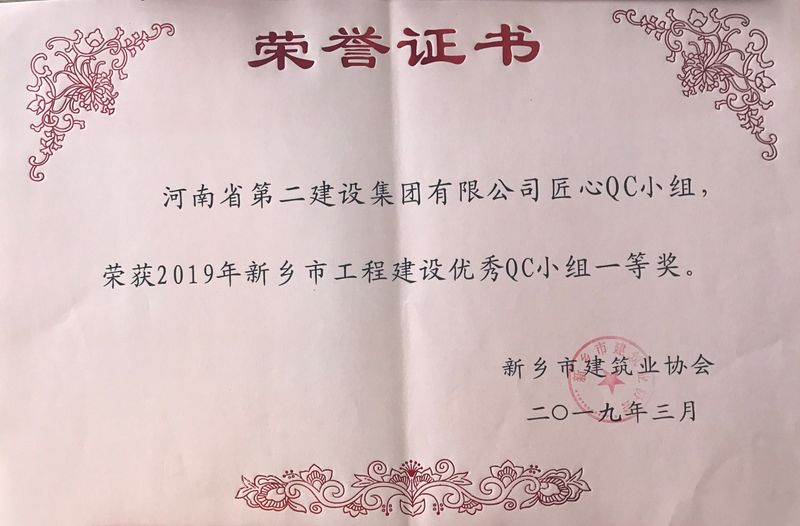 荣誉证书
河南省第二建设集团有限公司匠心QC小组，
荣获2019年新乡市工程建设优秀QC小组一等奖。
新乡市建筑业协会
二〇一九年三月
新乡市建筑业协会